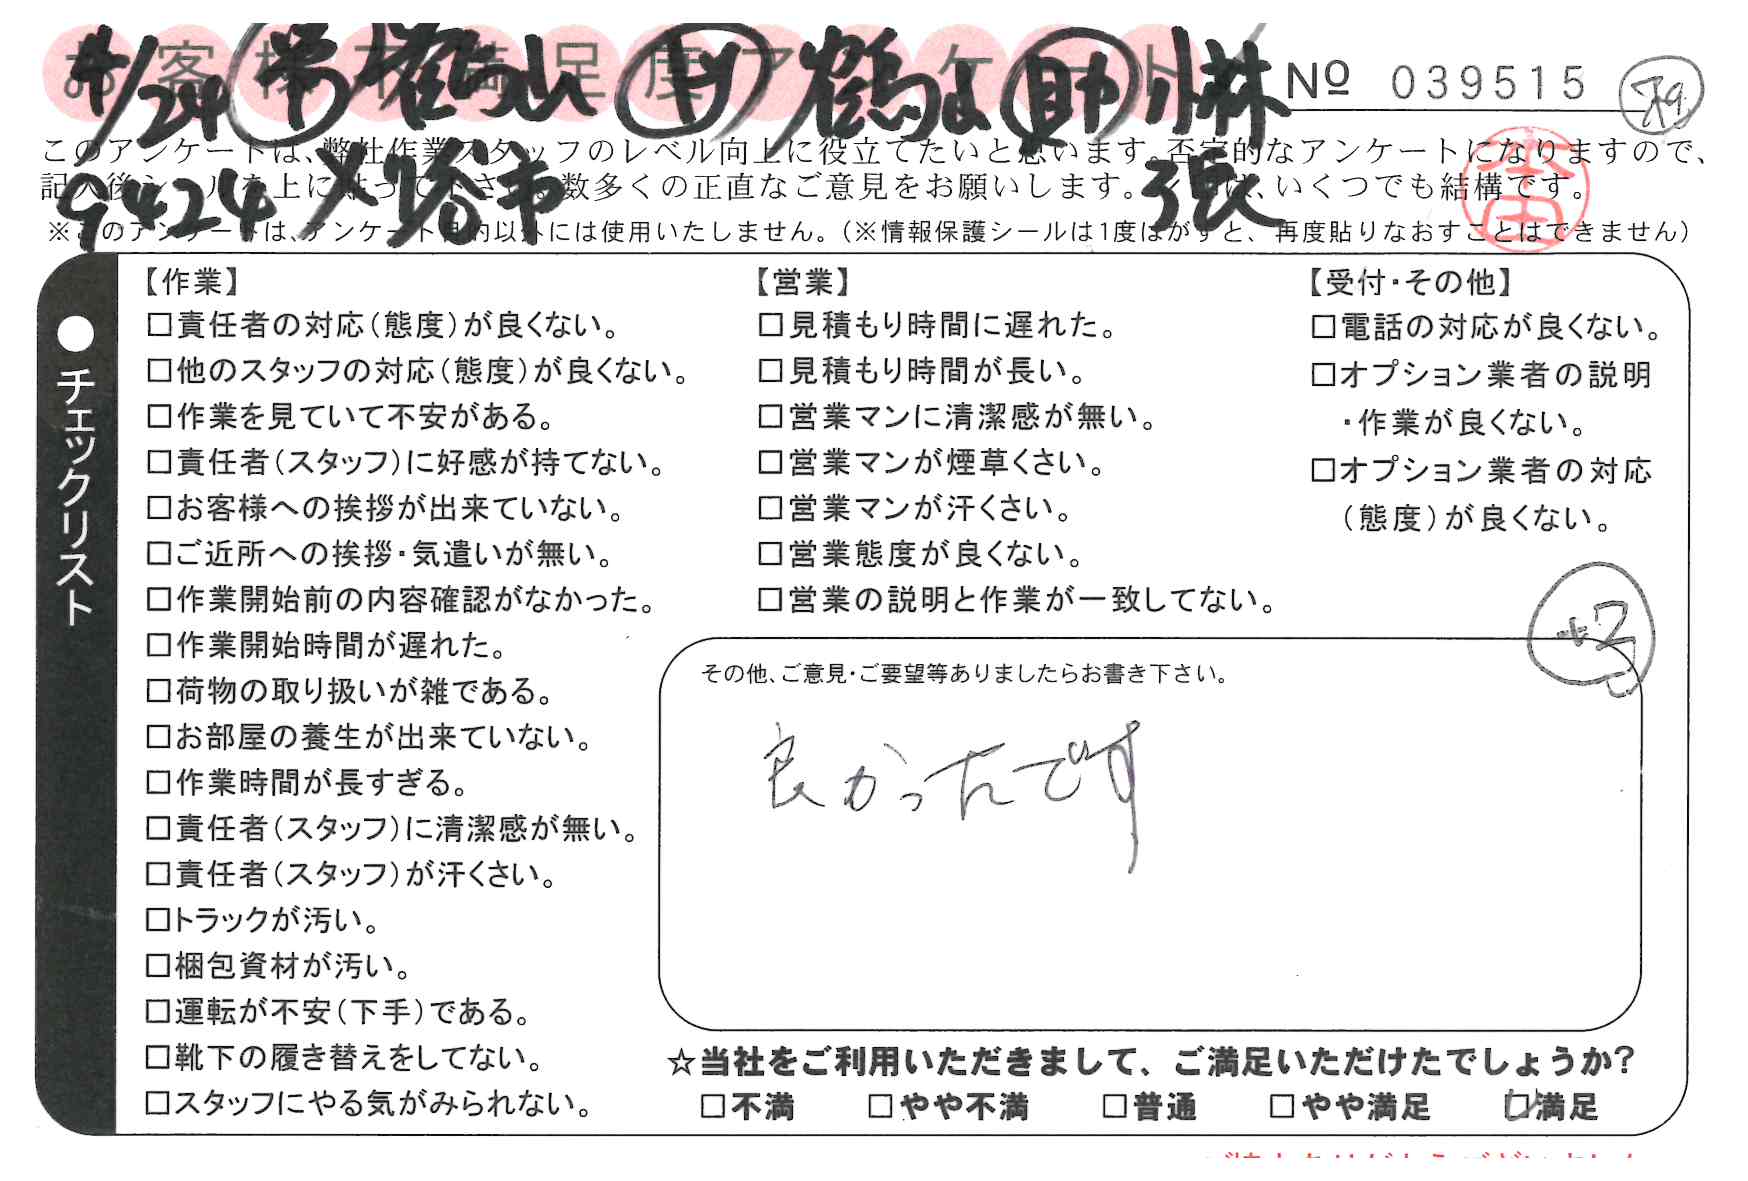 お客様不満足度アンケート
4/24
小林
No 039515
このアンケートは、弊社作業スタッフのレベル向上に役立てたいと思います。否定的なアンケートになりますので、
数多くの正直なご意見をお願いします。
いくつでも結構です。
9424
張
※このアンケートは、アンケート目的以外には使用いたしません。(※情報保護シールは1度はがすと、再度貼りなおすことはできません)
●チェックリスト
【作業】
□責任者の対応(態度)が良くない。
□他のスタッフの対応(態度)が良くない。
□作業を見ていて不安がある。
□責任者(スタッフ)に好感が持てない。
□お客様への挨拶が出来ていない。
□ご近所への挨拶・気遣いが無い。
□作業開始前の内容確認がなかった。
□作業開始時間が遅れた。
□荷物の取り扱いが雑である。
□お部屋の養生が出来ていない。
□作業時間が長すぎる。
□責任者(スタッフ)に清潔感が無い。
□責任者(スタッフ)が汗くさい。
□トラックが汚い。
□梱包資材が汚い。
□運転が不安(下手)である。
□靴下の履き替えをしてない。
□スタッフにやる気がみられない。
【営業】
□見積もり時間に遅れた。
□見積もり時間が長い。
□営業マンに清潔感が無い。
□営業マンが煙草くさい。
□営業マンが汗くさい。
□営業態度が良くない。
□営業の説明と作業が一致してない。
【受付・その他】
□電話の対応が良くない。
□オプション業者の説明
・作業が良くない。
□オプション業者の対応
(態度)が良くない。
その他、ご意見・ご要望等ありましたらお書き下さい。
良かったです
☆当社をご利用いただきまして、ご満足いただけたでしょうか?
□不満 □やや不満 □普通 □やや満足 □満足